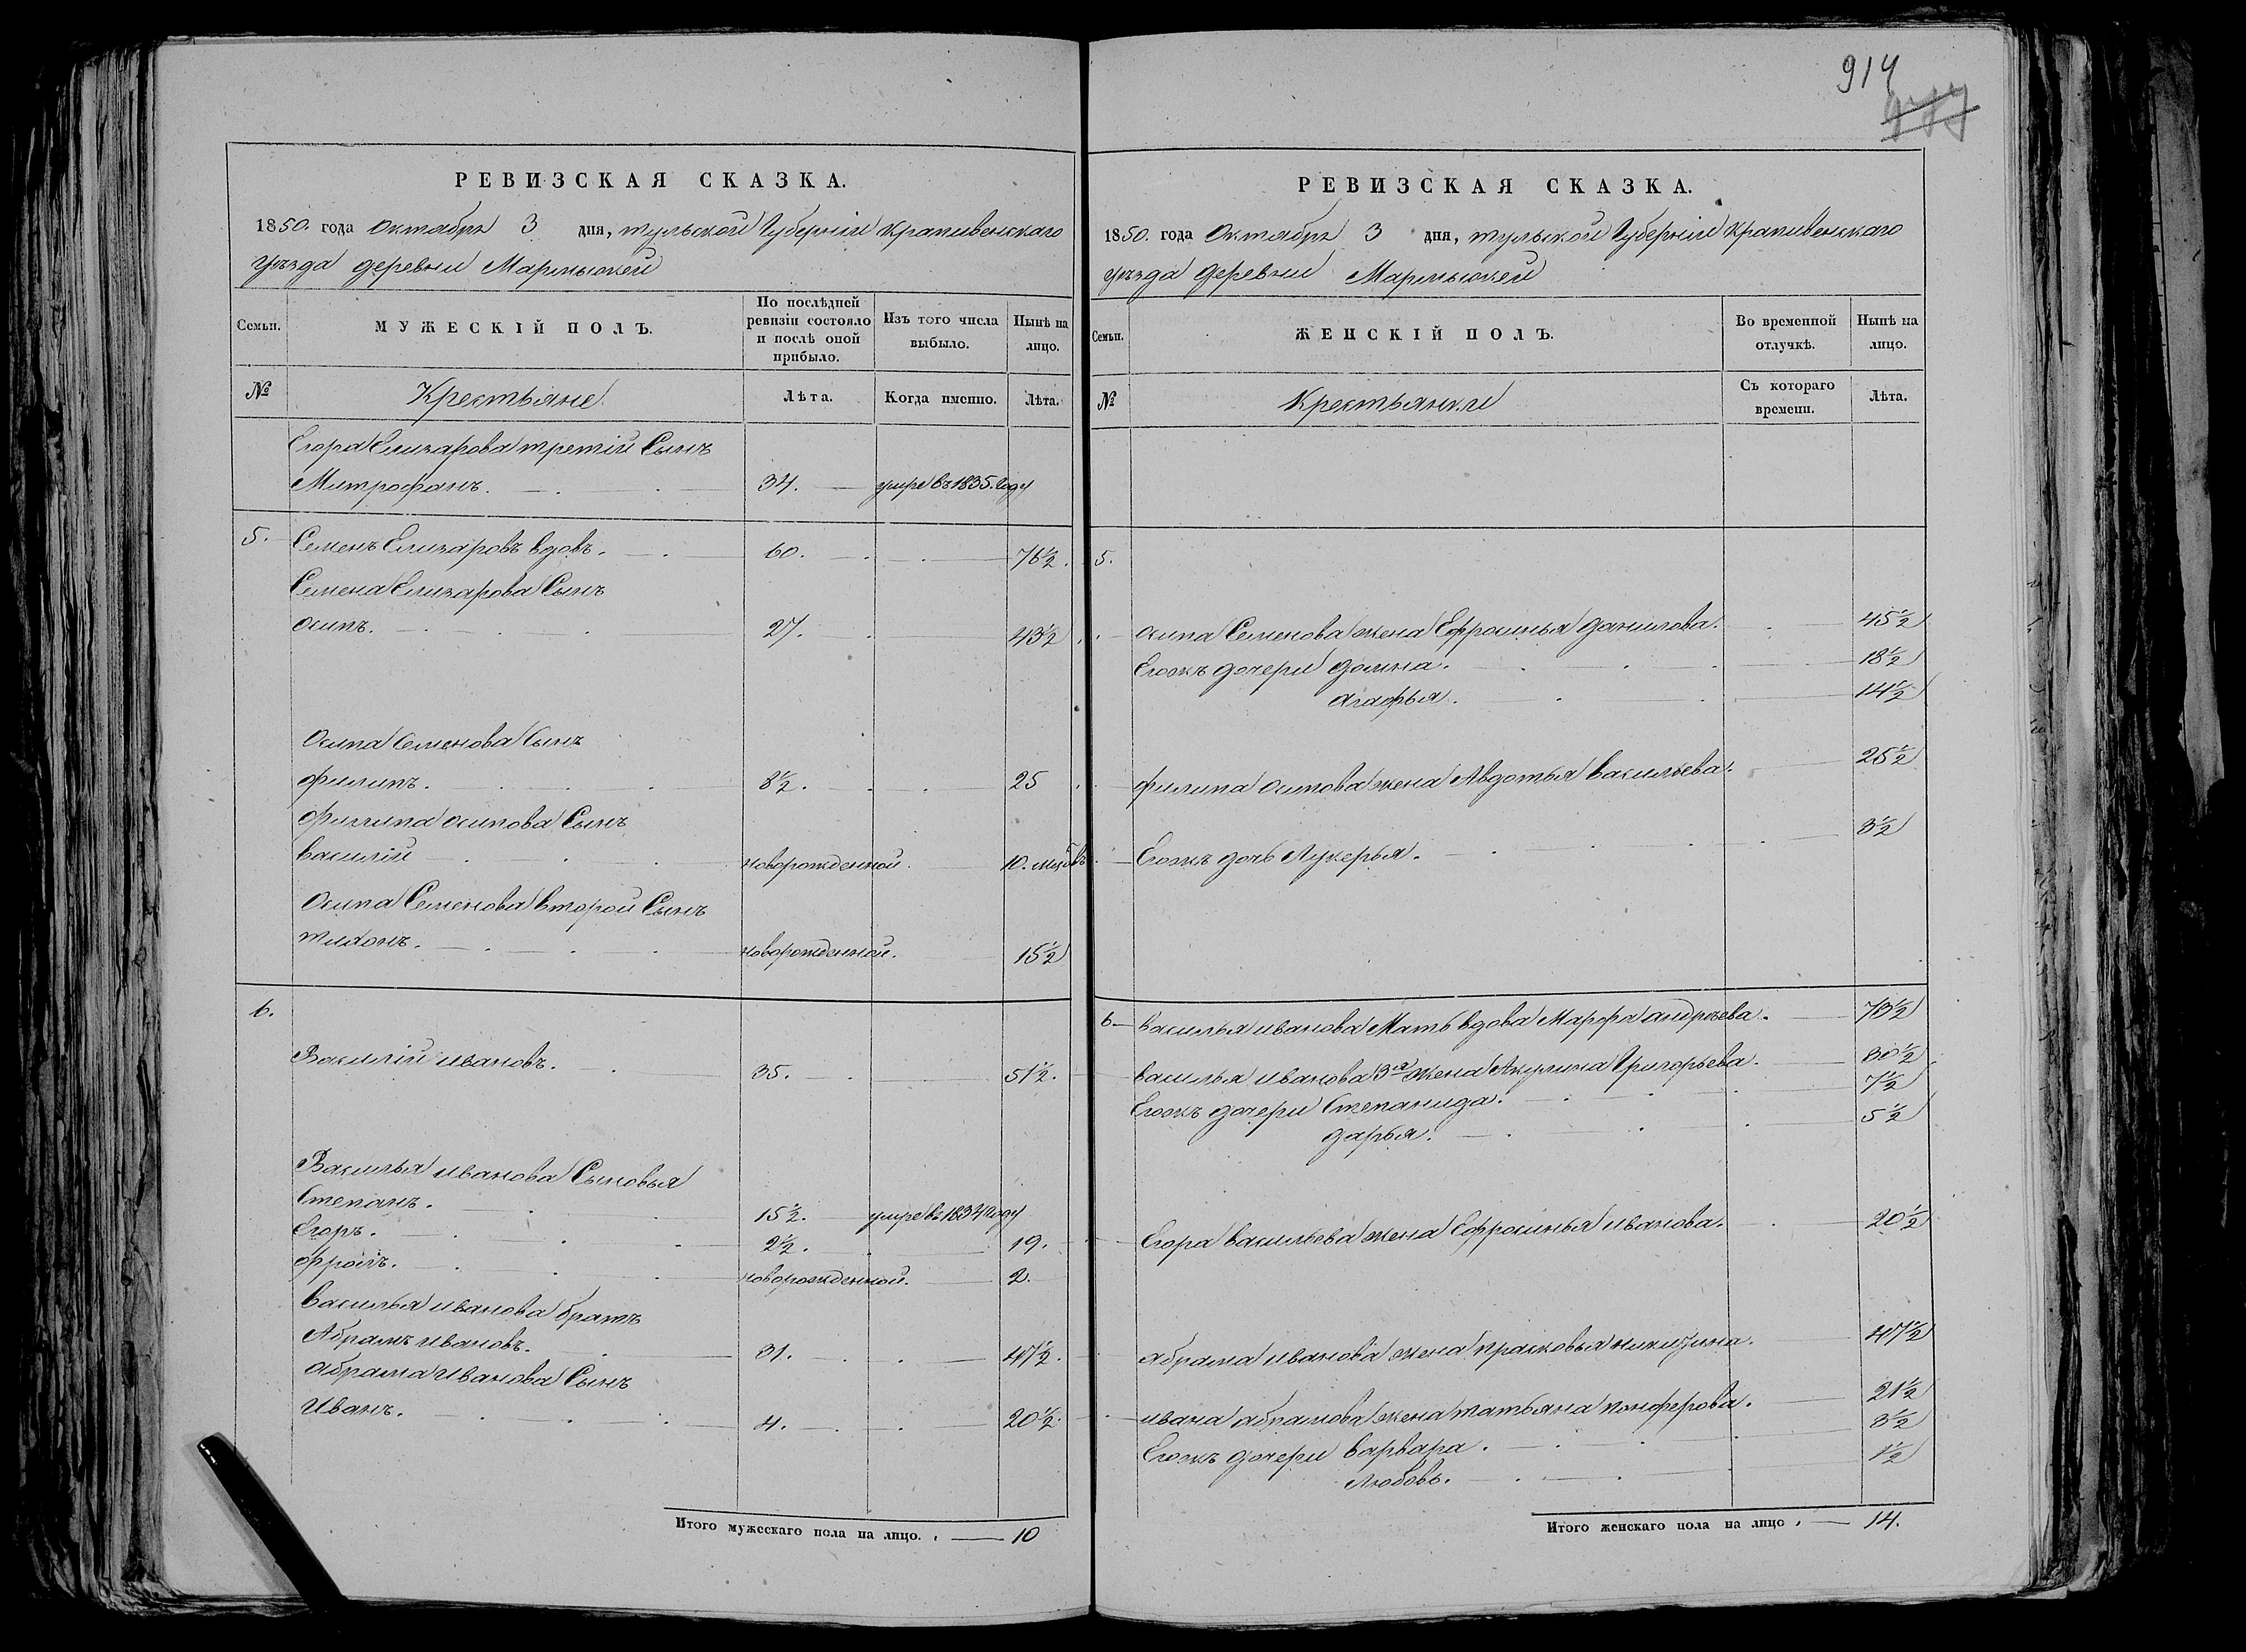 914
РЕВИЗСКАЯ СКАЗКА.
1850. года Октября 3 дня, тульской Губерніи Крапивенскаго
уезда деревни Мармыжей
Семьи.
МУЖЕСКІЙ ПОЛЪ.
По послѣдней ревизіи состояло и послѣ оной прибыло.
Изъ того числа выбыло.
Нынѣ на лицо.
№
Крестьяне
Лѣта.
Когда именно.
Лѣта.
Егора Елизарова третій Сынъ
Митрофанъ. 34. умре въ 1835. году
5. Семенъ Елизаровъ вдовъ. 60. 76½.
Семена Елизарова Сынъ
осипъ. 27. 43½
Осипа Семенова Сынъ
филипъ. 8½. 25
Филипа осипова Сынъ
василій новорожденной. 10. мцовъ
Осипа Семенова второй Сынъ
тихонъ. новорожденной. 15½
6.
Василій ивановъ. 35. 51½.
Василья иванова Сыновья
Степанъ. 15½. умре въ 1834 году
Егоръ. 2½. 19.
фролъ. новорожденной. 2.
василья иванова братъ
Абрамъ ивановъ. 31. 47½.
абрама иванова Сынъ
Иванъ. 4. 20½.
Итого мужескаго пола на лицо. 10
РЕВИЗСКАЯ СКАЗКА.
1850. года Октября 3 дня, тульской Губерніи Крапивенскаго
уезда деревни Мармыжей
Семьи.
ЖЕНСКІЙ ПОЛЪ.
Во временной отлучкѣ.
Нынѣ на лицо.
№
Крестьянки
Съ котораго времени.
Лѣта.
5.
осипа Семенова жена Ефросинья данилова. 45½
Егожъ дочери домна. 18½
агафья. 14½
филипа осипова жена Авдотья васильева. 25½
Егожъ дочь Лукерья. 3½
6 василья иванова Мать вдова Марфа андреева. 73½
василья иванова 3я жена Акулина Григорьева. 30½
Егожъ дочери Степанида. 7½
дарья. 5½
Егора васильева жена Ефросинья иванова. 20½
абрама иванова жена прасковья никитина. 47½
ивана абрамова жена татьяна панферова. 21½
Егожъ дочери варвара. 3½
Любовь. 1½
Итого женскаго пола на лицо 14.